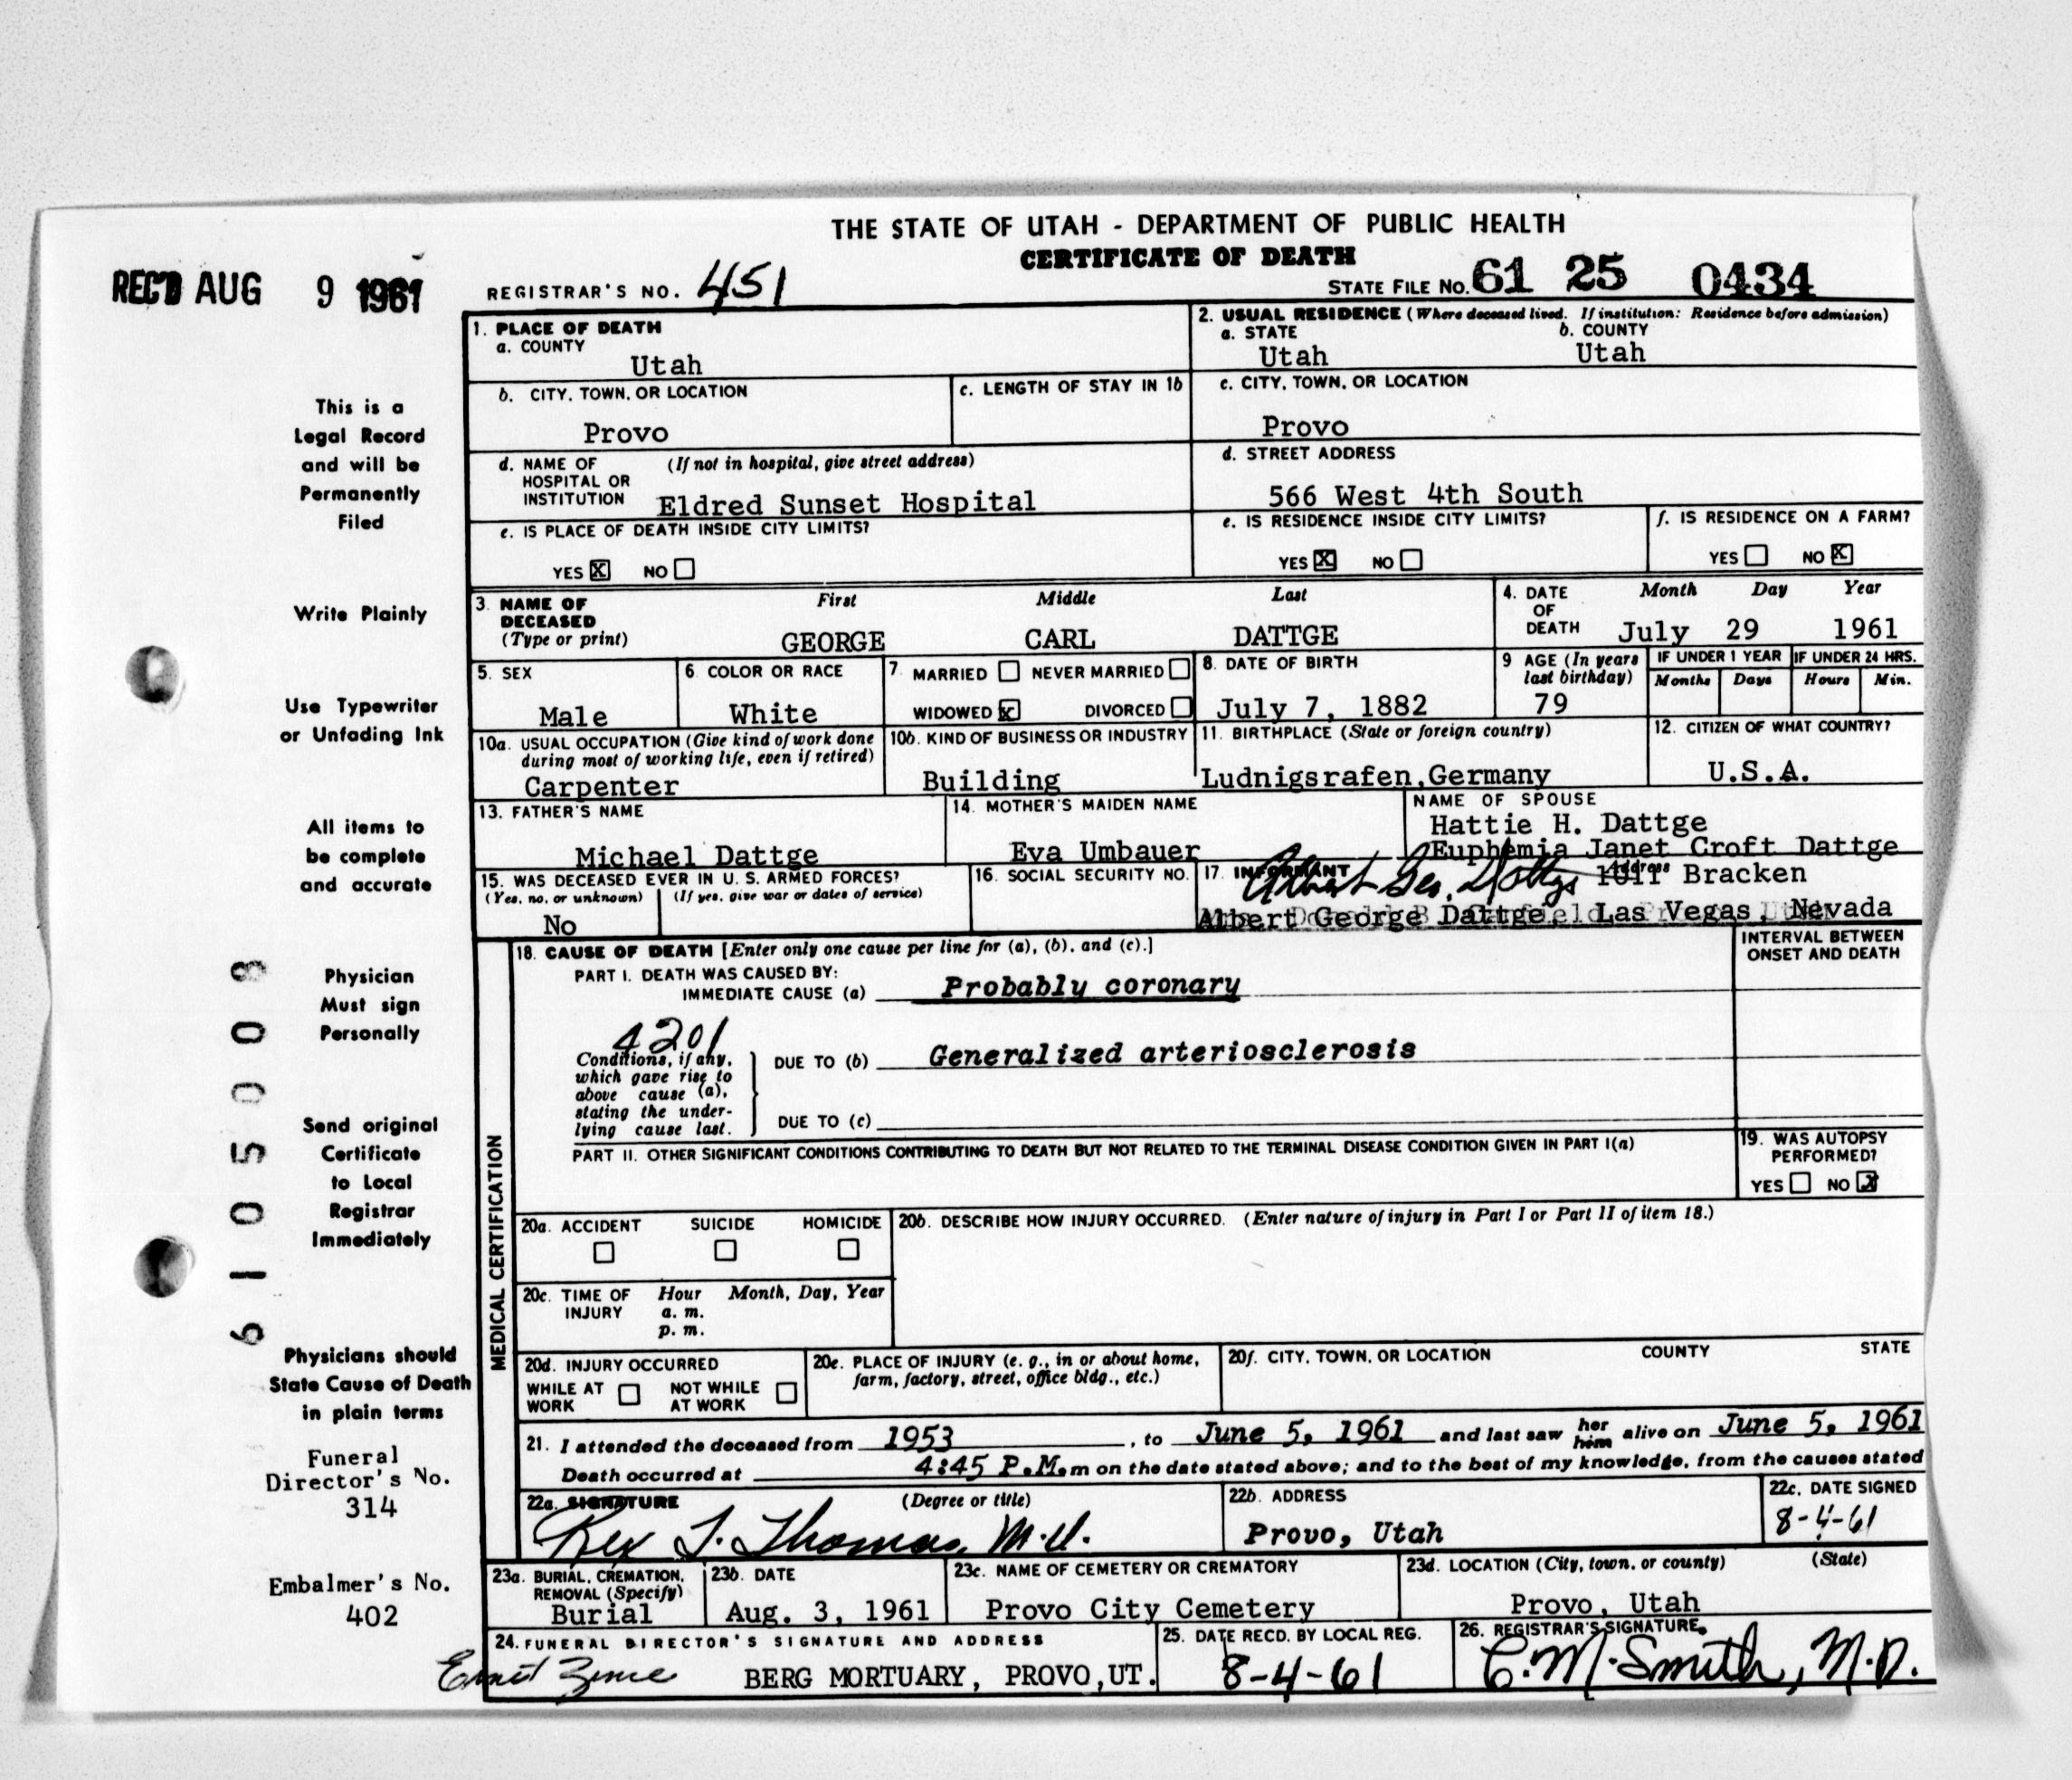 THE STATE OF UTAH - DEPARTMENT OF PUBLIC HEALTH
CERTIFICATE OF DEATH
REC'D AUG 9 1961
REGISTRAR'S NO. 451
STATE FILE NO. 61 25 0434
This is a
Legal Record
and will be
Permanently
Filed
Write Plainly
Use Typewriter
or Unfading Ink
All items to
be complete
and accurate
Physician
Must sign
Personally
Send original
Certificate
to Local
Registrar
Immediately
Physicians should
State Cause of Death
in plain terms
Funeral
Director's No.
314
Embalmer's No.
402
61 05008
1. PLACE OF DEATH
a. COUNTY
Utah
b. CITY, TOWN, OR LOCATION
Provo
c. LENGTH OF STAY IN 1b
d. NAME OF HOSPITAL OR INSTITUTION (If not in hospital, give street address)
Eldred Sunset Hospital
e. IS PLACE OF DEATH INSIDE CITY LIMITS?
YES X NO
2. USUAL RESIDENCE (Where deceased lived. If institution: Residence before admission)
a. STATE
Utah
b. COUNTY
Utah
c. CITY, TOWN, OR LOCATION
Provo
d. STREET ADDRESS
566 West 4th South
e. IS RESIDENCE INSIDE CITY LIMITS?
YES X NO
f. IS RESIDENCE ON A FARM?
YES NO X
3. NAME OF DECEASED (Type or print)
First Middle Last
GEORGE CARL DATTGE
4. DATE OF DEATH
Month Day Year
July 29 1961
5. SEX
Male
6. COLOR OR RACE
White
7. MARRIED NEVER MARRIED
WIDOWED X DIVORCED
8. DATE OF BIRTH
July 7, 1882
9 AGE (In years last birthday)
79
IF UNDER 1 YEAR
Months Days
IF UNDER 24 HRS.
Hours Min.
10a. USUAL OCCUPATION (Give kind of work done during most of working life, even if retired)
Carpenter
10b. KIND OF BUSINESS OR INDUSTRY
Building
11. BIRTHPLACE (State or foreign country)
Ludnigsrafen,Germany
12. CITIZEN OF WHAT COUNTRY?
U.S.A.
13. FATHER'S NAME
Michael Dattge
14. MOTHER'S MAIDEN NAME
Eva Umbauer
NAME OF SPOUSE
Hattie H. Dattge
Euphemia Janet Croft Dattge
15. WAS DECEASED EVER IN U.S. ARMED FORCES?
(Yes, no, or unknown) (If yes, give war or dates of service)
No
16. SOCIAL SECURITY NO.
17. INFORMANT Address
Albert Geo. Dattge 1011 Bracken
Albert George Dattge, Las Vegas, Nevada
MEDICAL CERTIFICATION
18. CAUSE OF DEATH [Enter only one cause per line for (a), (b), and (c).]
INTERVAL BETWEEN ONSET AND DEATH
PART I. DEATH WAS CAUSED BY:
IMMEDIATE CAUSE (a) Probably coronary
4201
Conditions, if any, which gave rise to above cause (a), stating the underlying cause last.
DUE TO (b) Generalized arteriosclerosis
DUE TO (c)
PART II. OTHER SIGNIFICANT CONDITIONS CONTRIBUTING TO DEATH BUT NOT RELATED TO THE TERMINAL DISEASE CONDITION GIVEN IN PART I(a)
19. WAS AUTOPSY PERFORMED?
YES NO X
20a. ACCIDENT SUICIDE HOMICIDE
20b. DESCRIBE HOW INJURY OCCURRED. (Enter nature of injury in Part I or Part II of item 18.)
20c. TIME OF INJURY Hour Month, Day, Year
a. m.
p. m.
20d. INJURY OCCURRED
WHILE AT WORK NOT WHILE AT WORK
20e. PLACE OF INJURY (e. g., in or about home, farm, factory, street, office bldg., etc.)
20f. CITY, TOWN, OR LOCATION COUNTY STATE
21. I attended the deceased from 1953, to June 5, 1961 and last saw her him alive on June 5, 1961
Death occurred at 4:45 P.M. m on the date stated above; and to the best of my knowledge, from the causes stated
22a. SIGNATURE (Degree or title)
Rex T. Thomas, M.D.
22b. ADDRESS
Provo, Utah
22c. DATE SIGNED
8-4-61
23a. BURIAL, CREMATION, REMOVAL (Specify)
Burial
23b. DATE
Aug. 3, 1961
23c. NAME OF CEMETERY OR CREMATORY
Provo City Cemetery
23d. LOCATION (City, town, or county) (State)
Provo, Utah
24. FUNERAL DIRECTOR'S SIGNATURE AND ADDRESS
BERG MORTUARY, PROVO,UT.
25. DATE RECD. BY LOCAL REG.
8-4-61
26. REGISTRAR'S SIGNATURE
C.M. Smith, M.D.